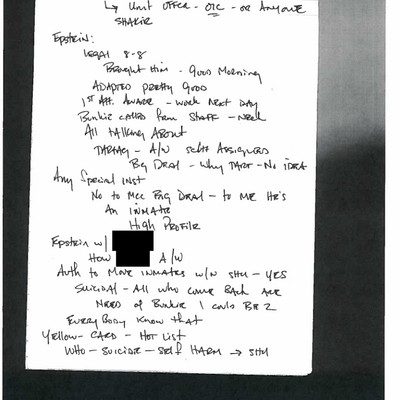 ↳ Unit Officer - OIC - or Anyone
Shakir
Epstein:
Legal 8-8
Brought Him - Good Morning
Adapted Pretty Good
1st Aware - week Next Day
Bunkie called from Staff - Neck
All talking About
Tartag - A/W Self Assigned
Big Deal - Why - No idea
Any Special Inst
No to Big Deal - to me He's
An inmate
High Profile
Epstein w/
How A/W
Auth to Move inmates w/n SHU - YES
Suicidal - All who come Back Are
Need of Bunkie 1 could Be 2
Everybody Know that
Yellow - Card - Hot List
Who - Suicide - Self Harm → SHU